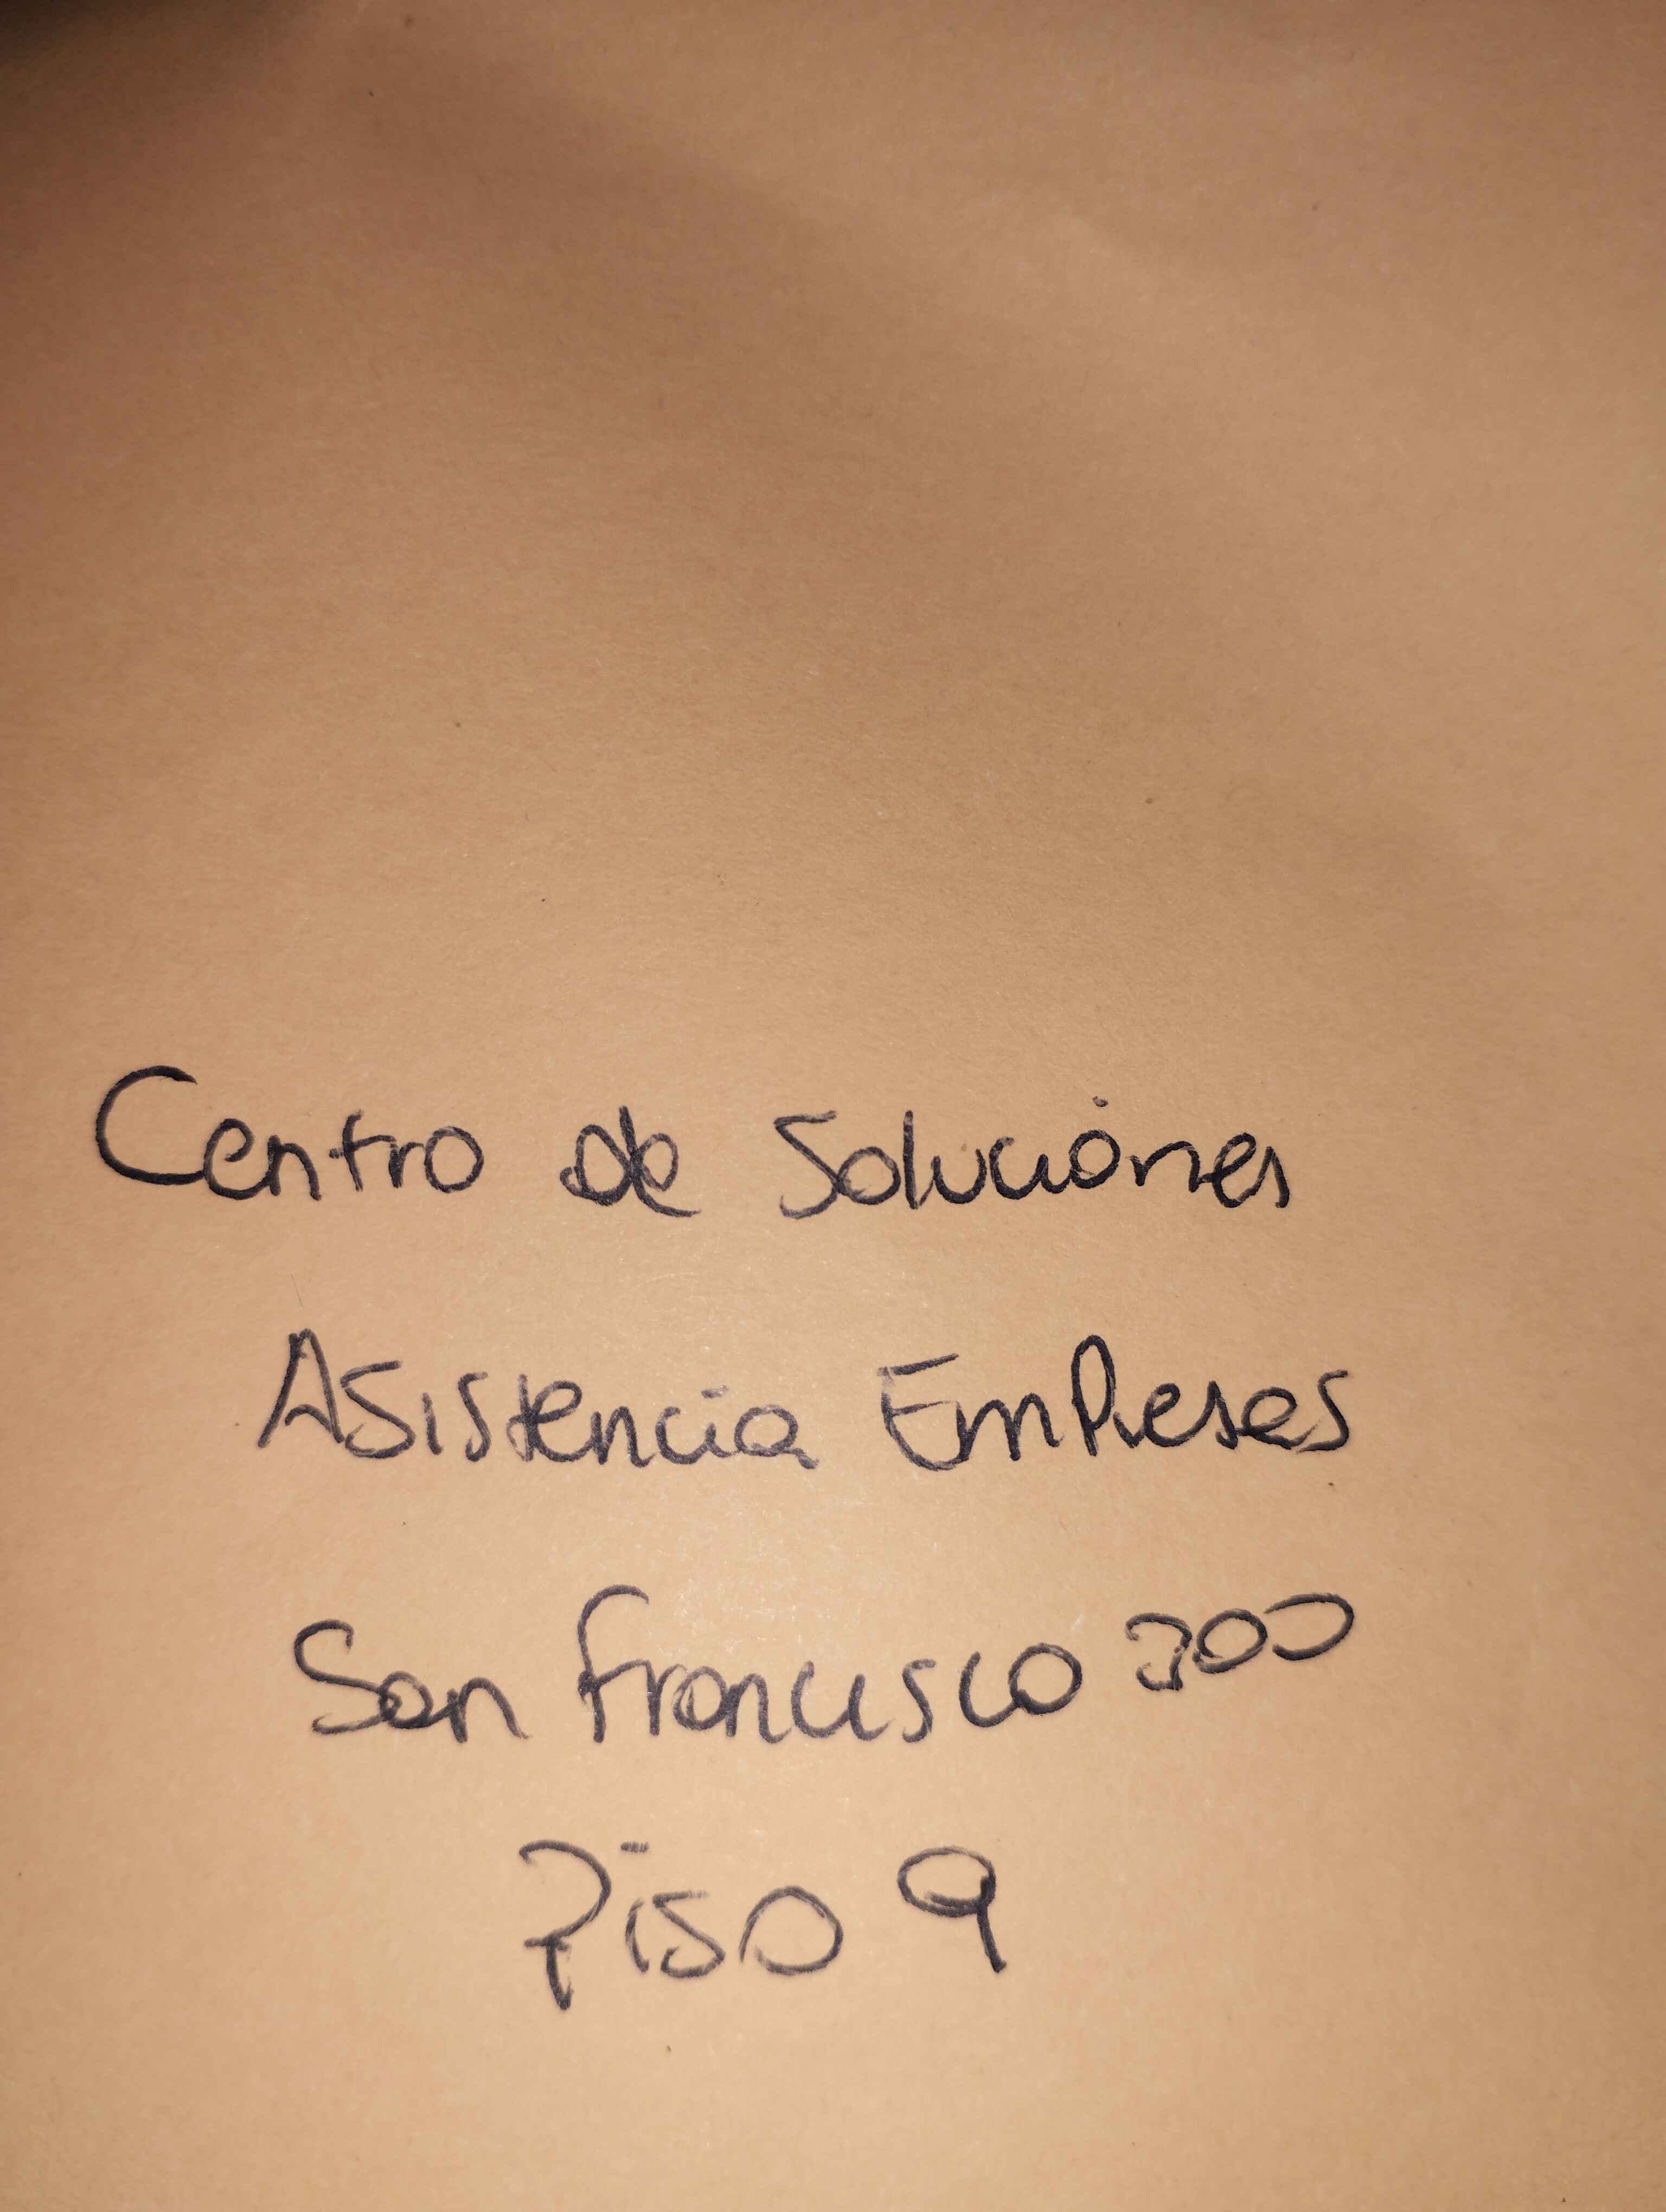 Centro de Soluciones
Asistencia Empresas
San Francisco 300
Piso 9